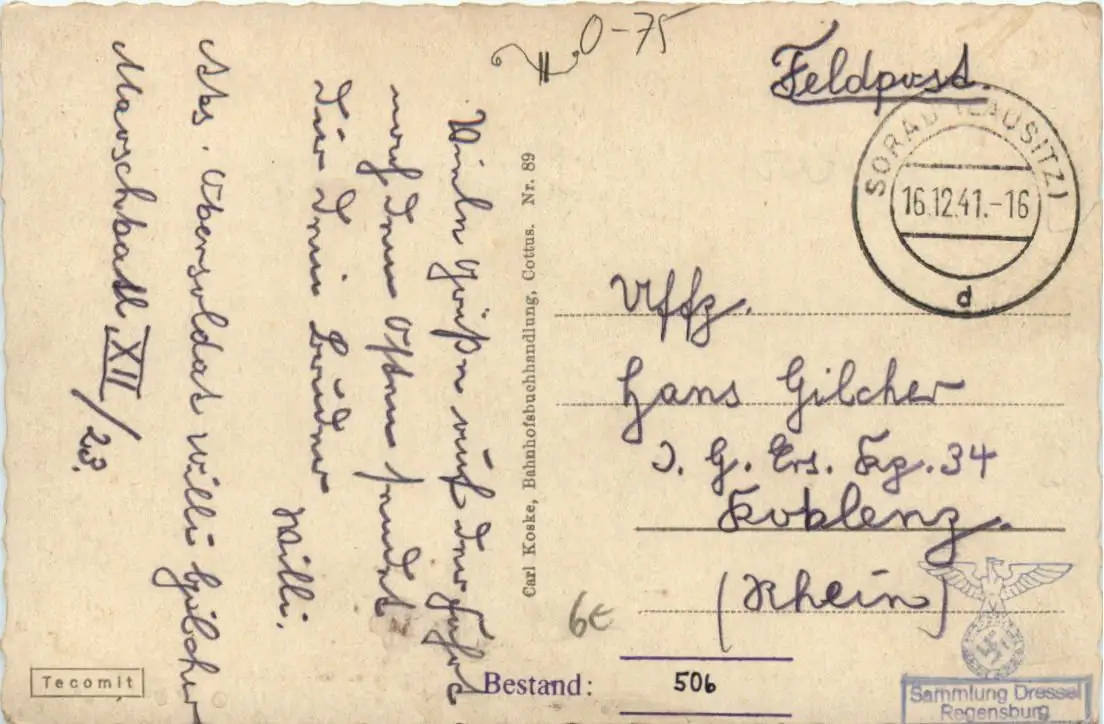 0-75
Viele Grüße auf der Fahrt
nach dem Osten sendet
Dir Dein Bruder
Willi.
Abs. Obersoldat Willi Gilcher
Marschbatl. XII/23.
Carl Koske, Bahnhofsbuchhandlung, Cottus. Nr. 89
Tecomit
Feldpost.
SORAU (LAUSITZ)
16.12.41.-16
d
Uffz.
Hans Gilcher
J. G. Ers. 34
Koblenz.
(Rhein)
6€
Bestand: 506
Sammlung Dressel
Regensburg